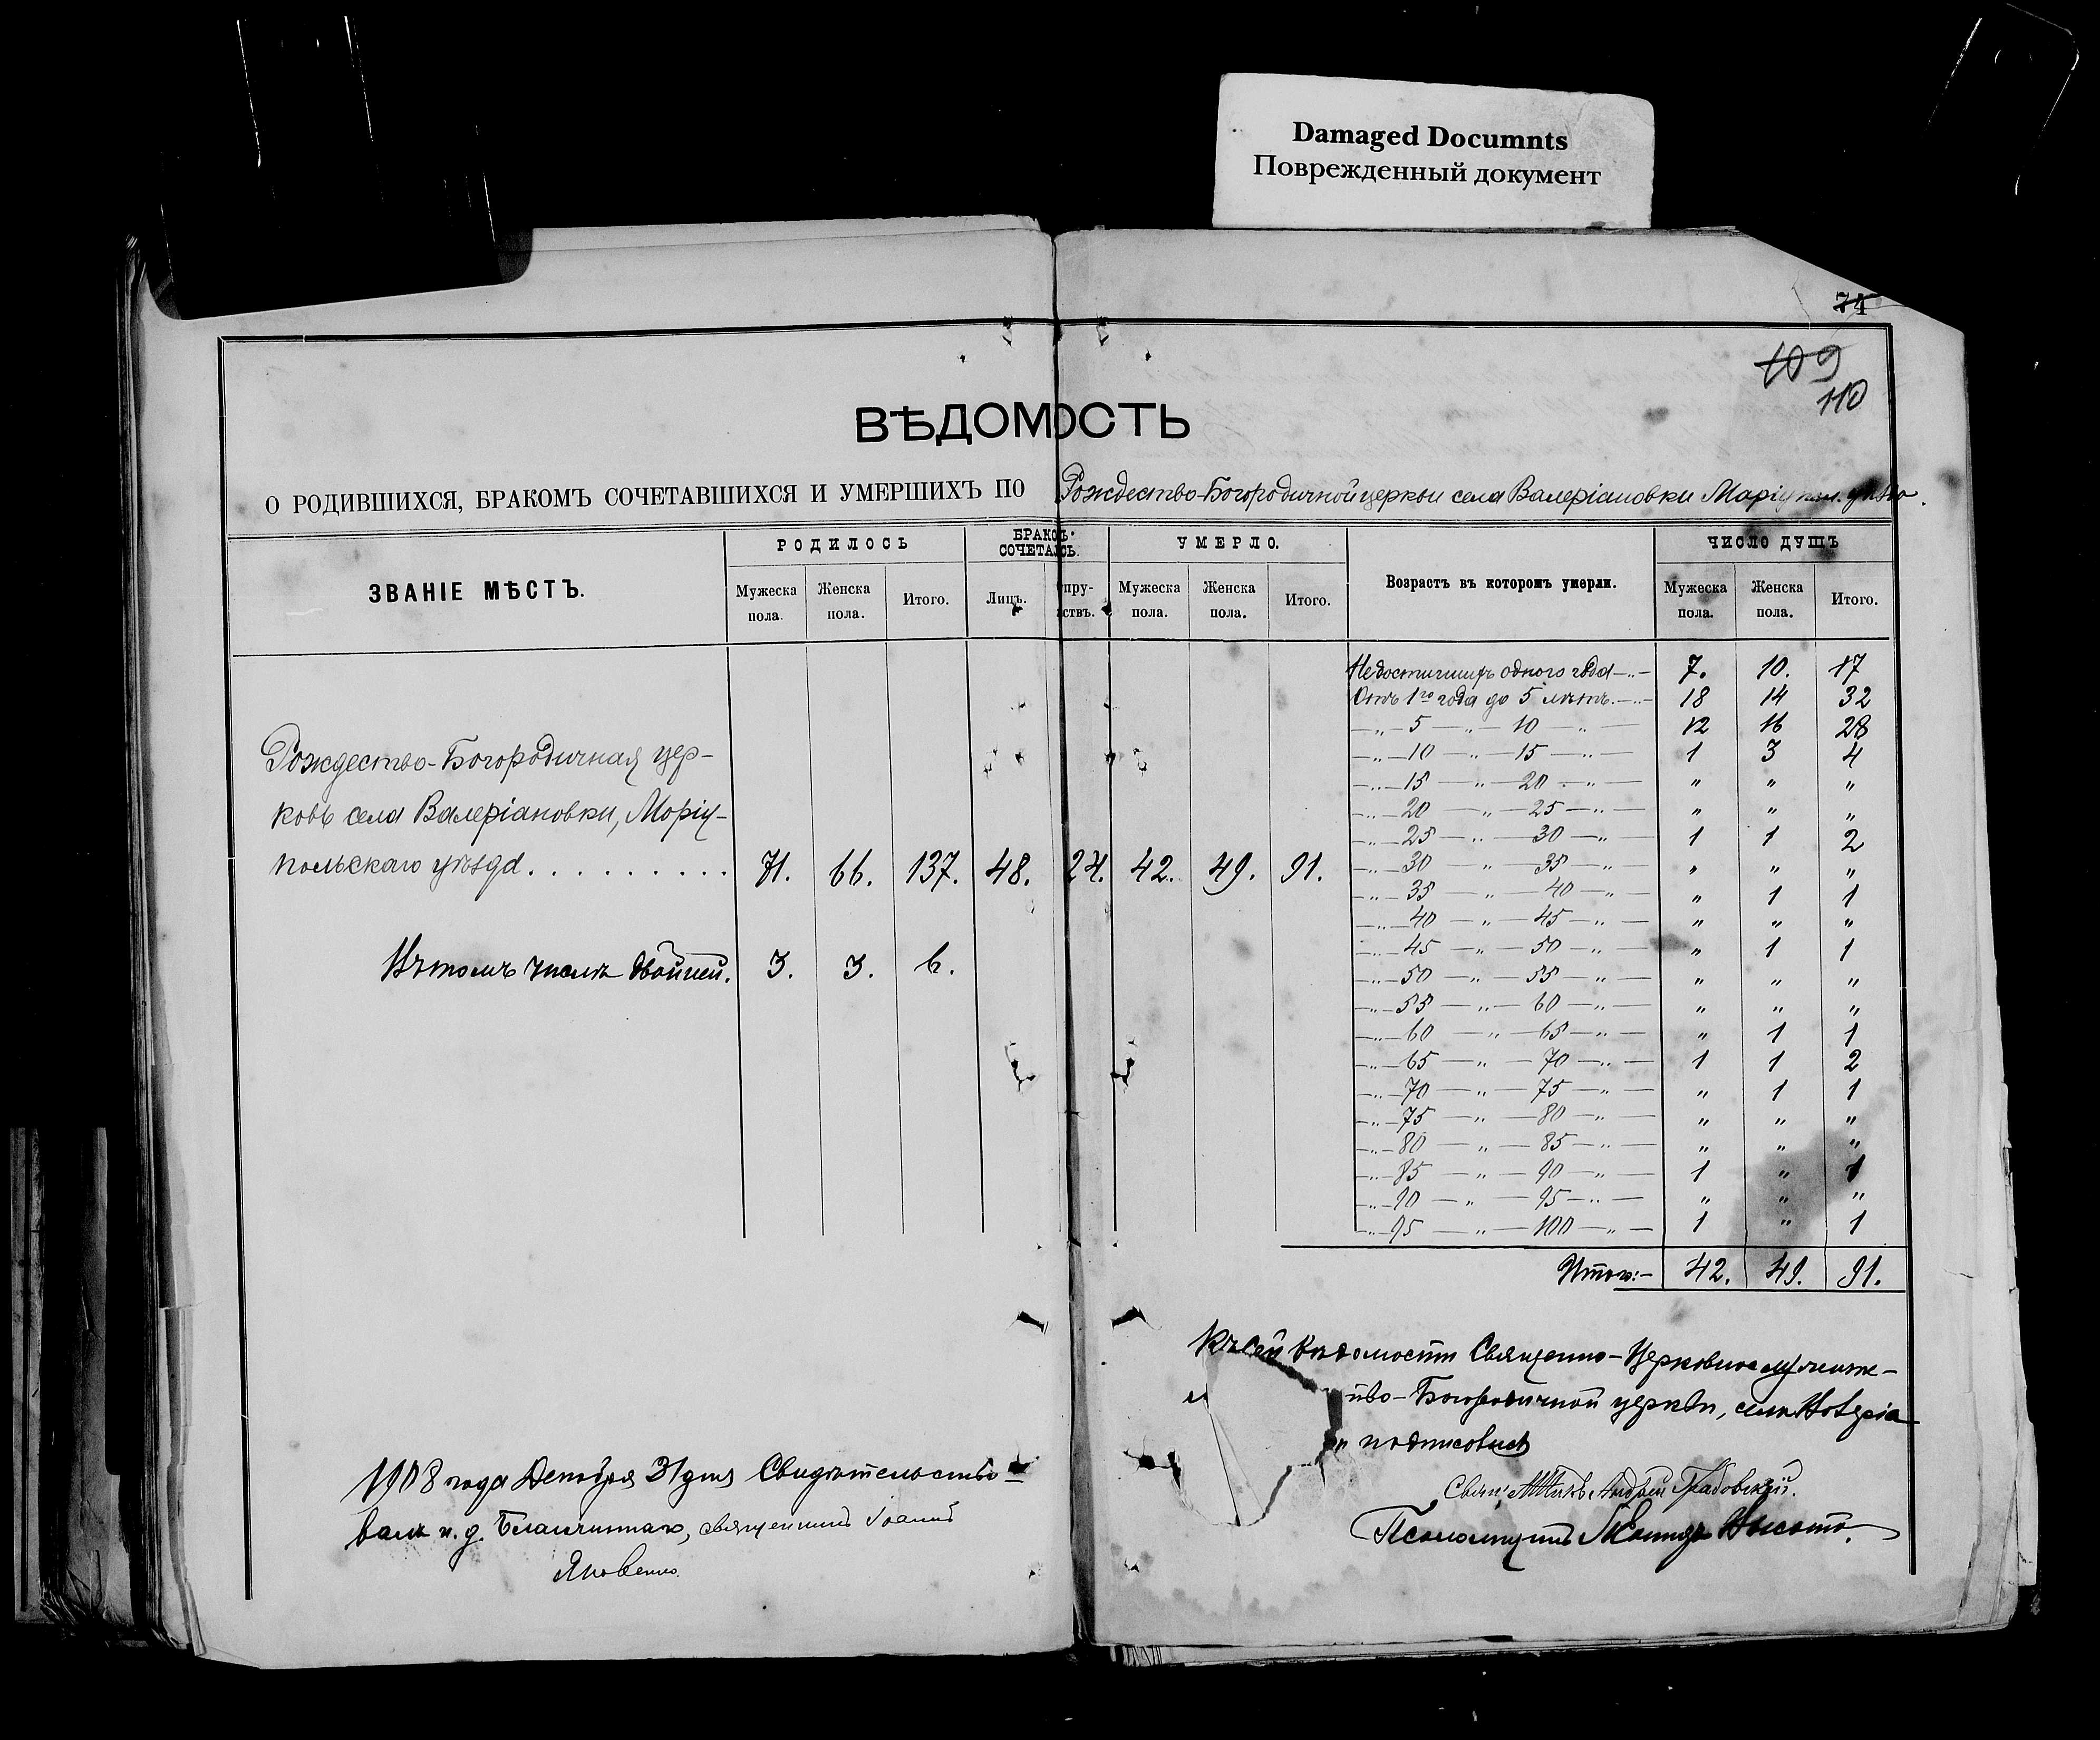 Damaged Documnts
Поврежденный документ
74
109
110
ВѢДОМОСТЬ
О РОДИВШИХСЯ, БРАКОМЪ СОЧЕТАВШИХСЯ И УМЕРШИХЪ ПО Рождество-Богородичной церкви села Валеріановки Маріупол. уѣзда.
ЗВАНІЕ МѢСТЪ. РОДИЛОСЬ БРАКОМЪ СОЧЕТАЛСЬ. УМЕРЛО. Возрастъ въ которомъ умерли. ЧИСЛО ДУШЪ
Мужеска пола. Женска пола. Итого. Лицъ. Мужеска пола. Женска пола. Итого. Мужеска пола. Женска пола. Итого.
Недостигшихъ одного года 7. 10. 17
Отъ 1го года до 5 лѣтъ. 18 14 32
„ 5 „ 10 „ 12 16 28
„ 10 „ 15 „ 1 3 4
„ 15 „ 20 „ „ „ „
„ 20 „ 25 „ „ „ „
„ 25 „ 30 „ 1 1 2
„ 30 „ 35 „ „ „ „
„ 35 „ 40 „ „ 1 1
„ 40 „ 45 „ „ „ „
„ 45 „ 50 „ „ 1 1
„ 50 „ 55 „ „ „ „
„ 55 „ 60 „ „ „ „
„ 60 „ 65 „ „ 1 1
„ 65 „ 70 „ 1 1 2
„ 70 „ 75 „ „ 1 1
„ 75 „ 80 „ „ „ „
„ 80 „ 85 „ „ „ „
„ 85 „ 90 „ 1 „ 1
„ 90 „ 95 „ „ „ „
„ 95 „ 100 „ 1 „ 1
Итого:- 42. 49. 91.
Рождество-Богородичная цер-
ковь села Валеріановки, Маріу-
польскаго уѣзда . . . . . . . . . 71. 66. 137. 48. 24. 42. 49. 91.
Въ томъ числѣ двойней. 3. 3. 6.
Къ сей вѣдомости Священно-Церковно
ство-Богородичной церкви, села
подписались
Андрей Градовскій.
Псаломщикъ Леонидъ Высота.
1908 года Декабря 31 дня Свидѣтельство-
валъ и. д. Благочиннаго, священникъ Іоаннъ
Яковенко.